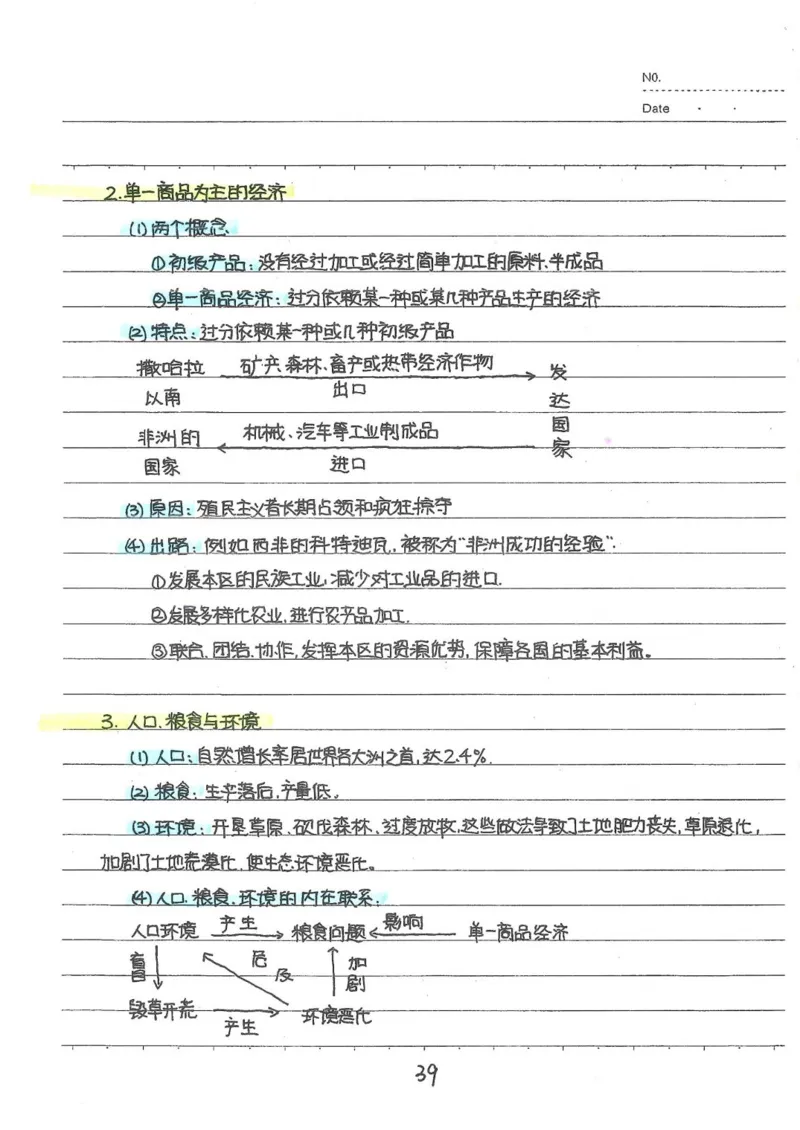 NO.
Date
2.单一商品为主的经济
(1)两个概念
①初级产品:没有经过加工或经过简单加工的原料、半成品
②单一商品经济:过分依赖某一种或某几种产品生产的经济
(2)特点:过分依赖某一种或几种初级产品
撒哈拉 矿产、森林、畜产或热带经济作物 发
以南 出口 达
非洲的 机械、汽车等工业制成品 国
国家 进口 家
(3)原因:殖民主义者长期占领和疯狂掠夺
(4)出路:例如西非的科特迪瓦,被称为"非洲成功的经验".
①发展本区的民族工业,减少对工业品的进口.
②发展多样化农业,进行农产品加工.
③联合、团结、协作,发挥本区的资源优势,保障各国的基本利益。
3. 人口、粮食与环境
(1)人口:自然增长率居世界各大洲之首,达2.4%.
(2)粮食:生产落后,产量低。
(3)环境:开垦草原、砍伐森林、过度放牧,这些做法导致了土地肥力丧失,草原退化,
加剧了土地荒漠化,使生态环境恶化。
(4)人口、粮食、环境的内在联系.
人口环境 产生 粮食问题 影响 单一商品经济
盲目 危及 加剧
毁草开荒 产生 环境恶化
39